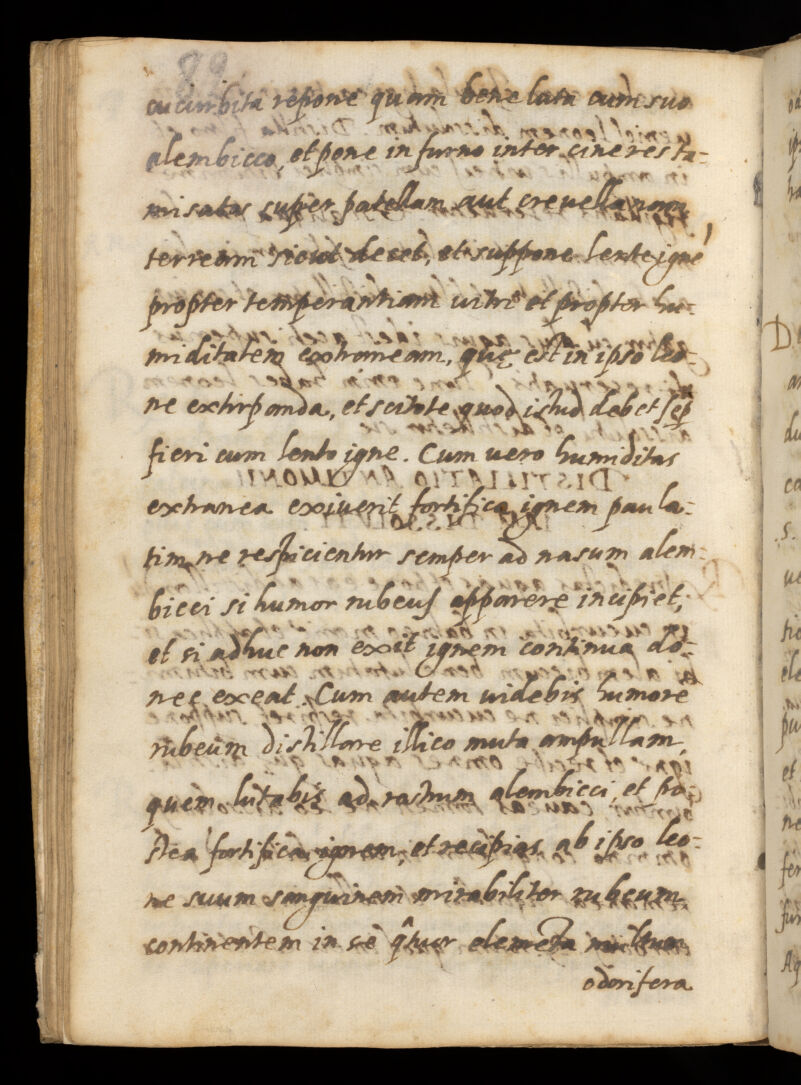 89
cucurbita repone quam bene luta cum suo
alembicco, et pone in furno inter cineres ta-
misatas super patellam aut crevella non
terream sicut decet, et suppone lente igné
propter temperantiam uitri et propter hu-
miditatem extraneam, quę est in ipso leo-
ne extirpanda, et scitote quod istud debet sęp
fieri cum lento igne. Cum uero humiditas
extranea exiuerit fortifica ignem paula-
tim, ne respicientur semper ad nasum alem-
bicci si humor rubeus apparere incipiet,
et si adhuc non exit ignem continua dō-
nec exeat. Cum autem uidebis humorē
rubeum distillare illico muta ampullam,
quem lutabis ad rastrum alembicci, et po-
stea fortifica ignem, et recipias ab ipso leo-
ne suum sanguinem mirabiliter rubeum,
continentem in se q̂tuor elemēta multum
odorifera